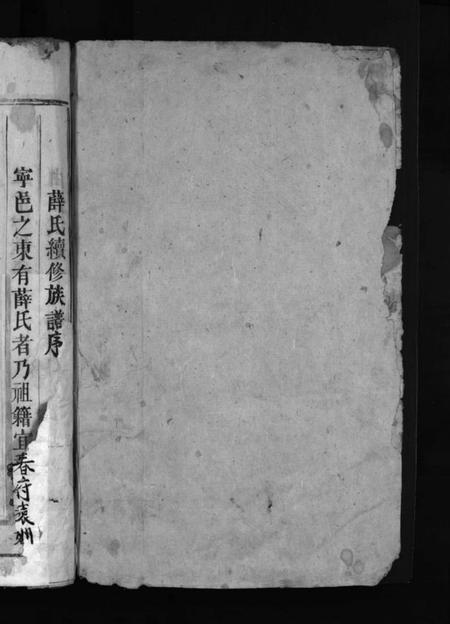 薛氏續修族譜序
寧邑之東有薛氏者乃祖籍宜春府袁州